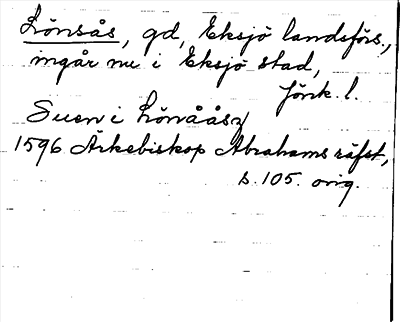 Lönsås, gd, Eksjö landsförs.,
ingår nu i Eksjö stad,
Jönk. l.
Suen i Lönåås
1596 Ärkebiskop Abrahams räfst,
s. 105. orig.